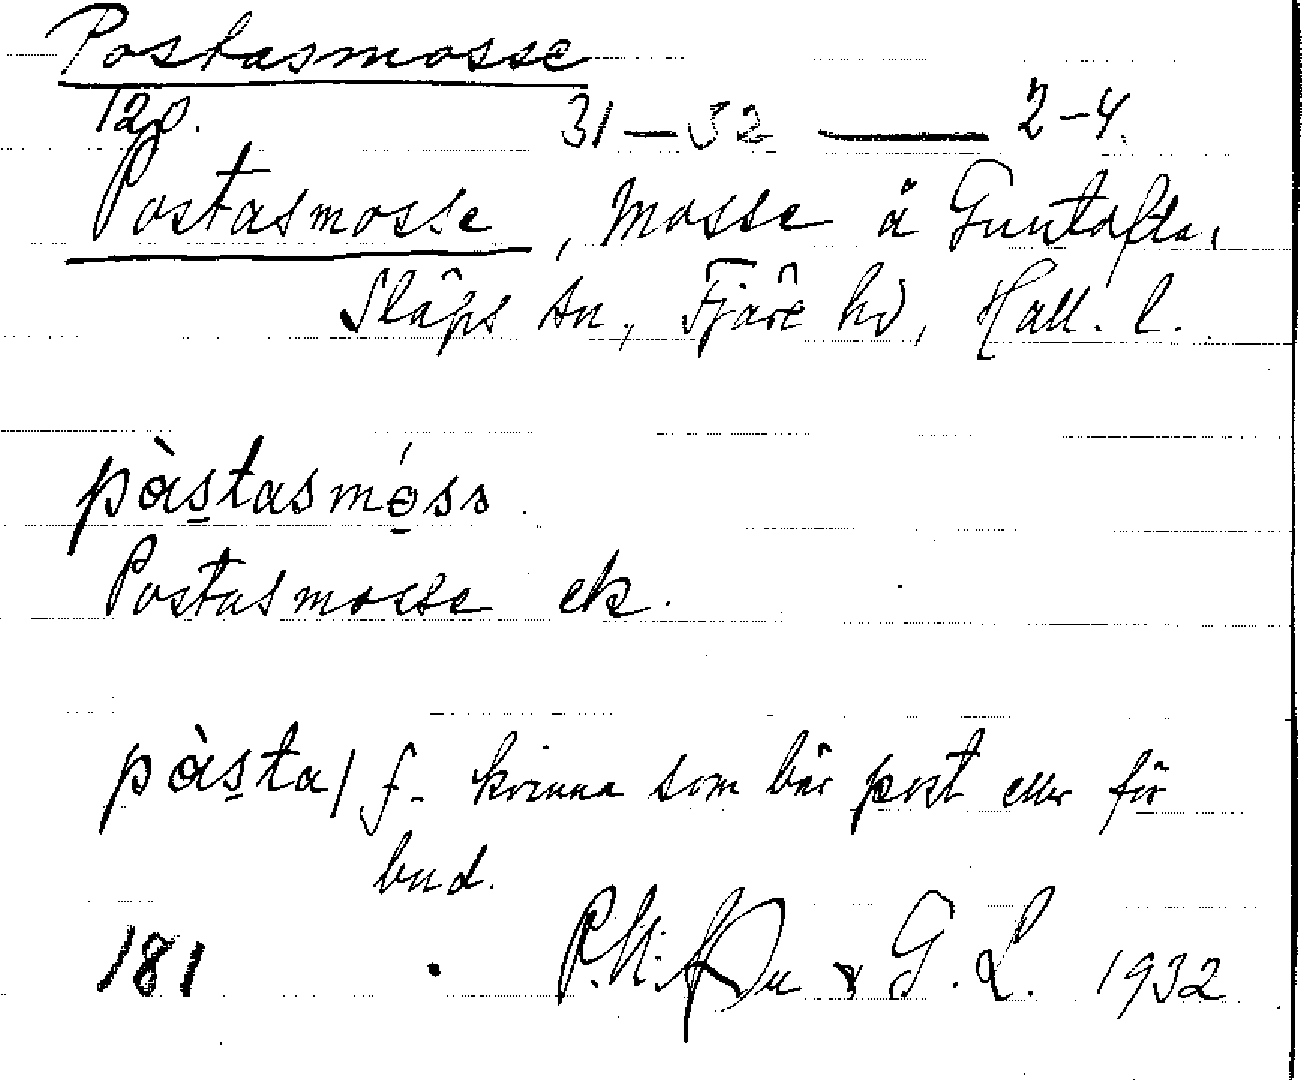 Postasmosse
12p. 31–52 — 2–4.
Postasmosse, mosse å Gustafsta,
Släps sn, Fjäre hd, Hall. l.
pàs̲tasmó̲ss
Postasmosse ek.
pàs̲ta/ f. kvinna som bär post eller för
bud.
181 . P. G. L. 1932